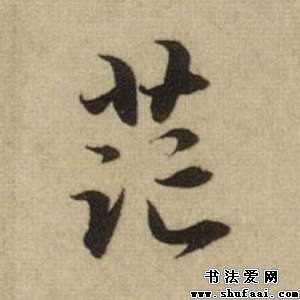 茫
书法爱网
www.shufaai.com